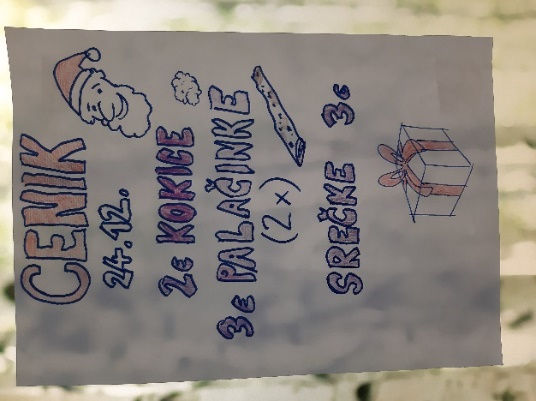 CENIK
24.12.
2€ KOKICE
3€ PALAČINKE
(2x)
SREČKE 3€